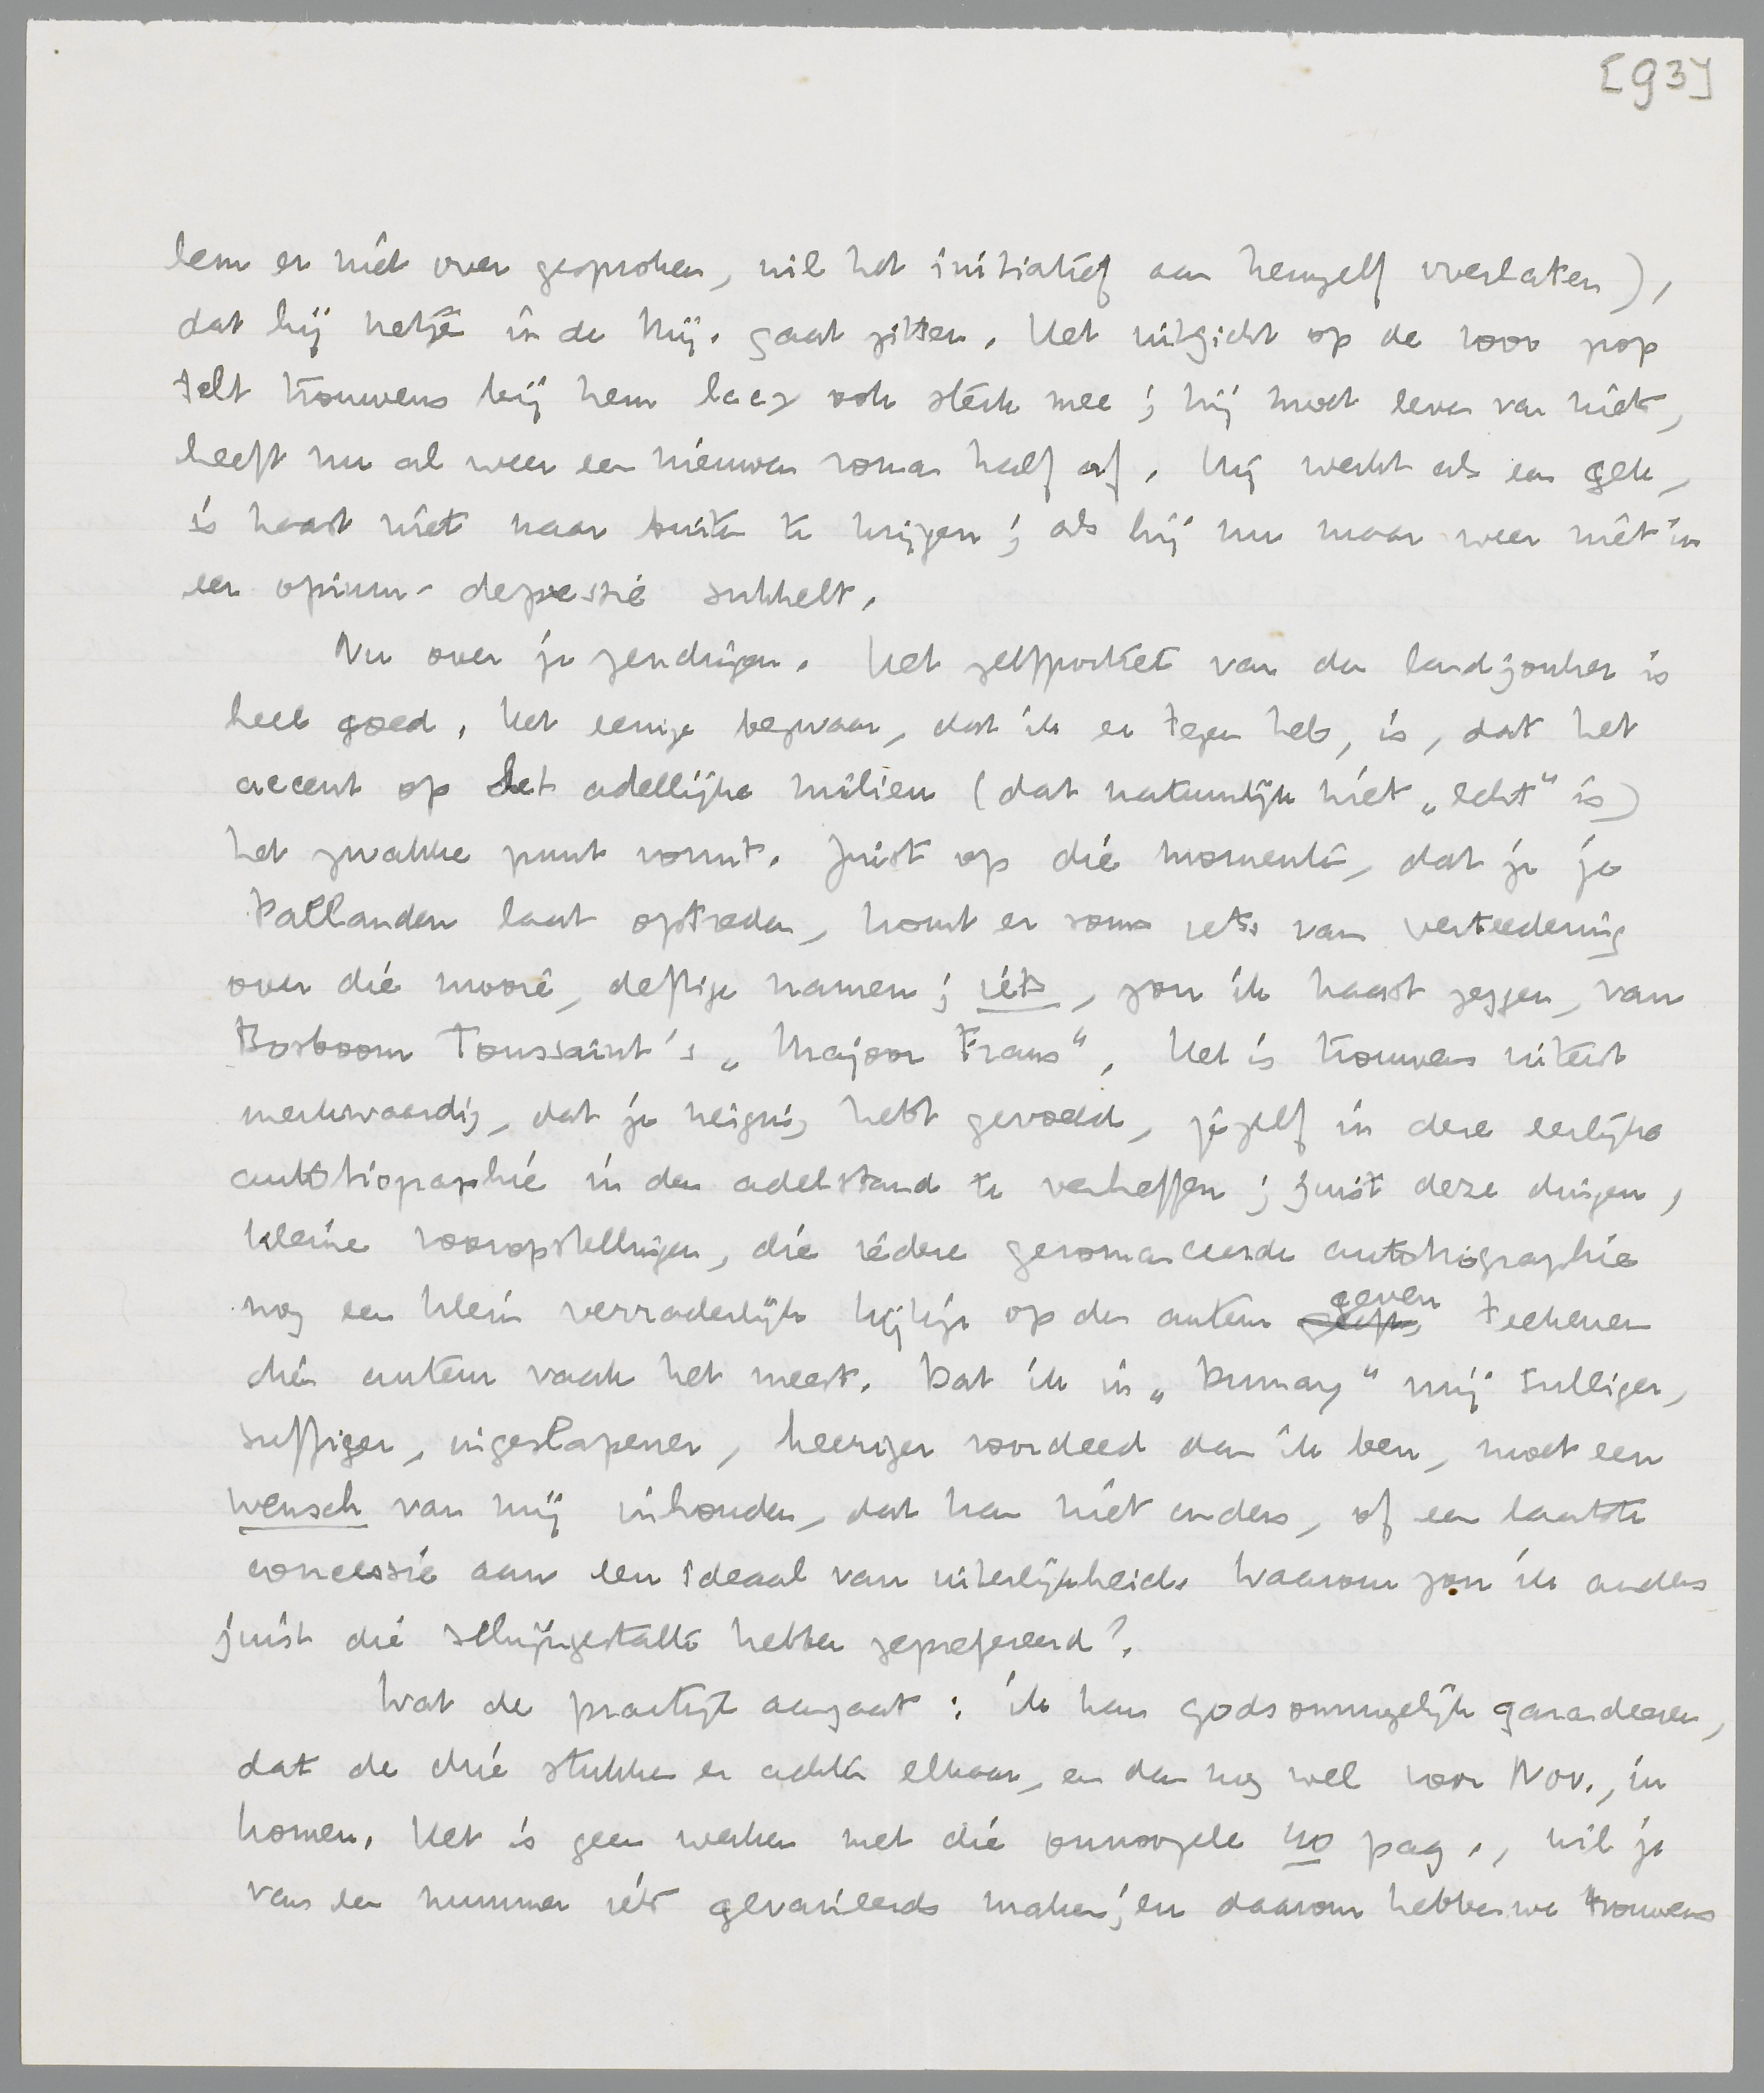 [93]
hem er niet over gesproken, wil het initiatief aan hemzelf overlaten),
dat hij netjes in de Mij. gaat zitten. Het uitzicht op de 1000 pop
telt trouwens bij hem laag ook sterk mee; hij moet leven van niets,
heeft nu al weer een nieuwen roman half af. Hij werkt als een gek,
is haast niet naar buiten te krijgen; als hij nu maar weer niet in
een opium-depressie sukkelt.
Nu over je zendingen. Het zelfportret van den landjonker is
heel goed. Het eenige bezwaar, dat ik er tegen heb, is, dat het
accent op het adellijke milieu (dat natuurlijk niet „echt" is)
het zwakke punt vormt. Juist op die momenten, dat je je
Pallanden laat optreden, komt er soms iets van verteedering
over die mooie, deftige namen; iets, zou ik haast zeggen, van
Bosboom Toussaint's „Majoor Frans". Het is trouwens uiterst
merkwaardig, dat je neiging hebt gevoeld, jezelf in deze eerlijke
autobiographie in den adelstand te verheffen; juist deze dingen,
kleine vooropstellingen, die iedere geromanceerde autobiographie
nog een klein verraderlijk kijkje op den auteur geven teekenen
dien auteur vaak het meest. Dat ik in „Dumay" mij sulliger,
suffiger, ingeslapener, heeriger voordeed dan ik ben, moet een
wensch van mij inhouden, dat kan niet anders, of een laatste
concessie aan een ideaal van uiterlijkheid. Waarom zou ik anders
juist die schijngestalte hebben geprefereerd?
Wat de practijk aangaat: ik kan godsonmogelijk garandeeren,
dat de drie stukken er achter elkaar, en dan nog wel voor Nov., in
komen. Het is geen werken met die onnoozele 40 pag., wil je
van een nummer iets gevarieerds maken; en daarom hebben we trouwens